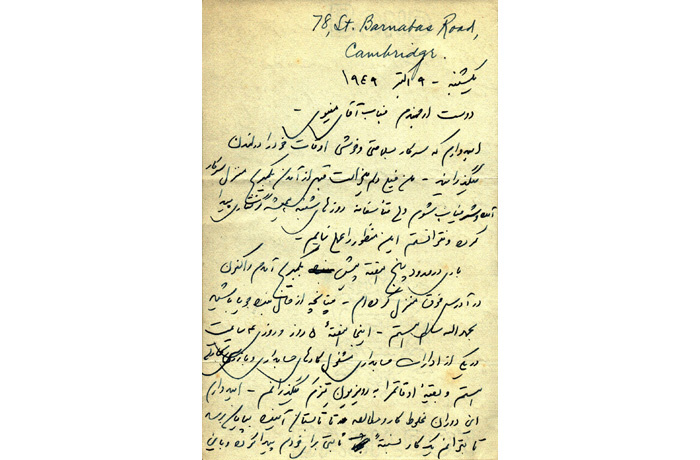 78, St. Barnabas Road,
Cambridge.
یکشنبه - ۹ اکتبر ۱۹۴۹
دوست ارجمندم جناب آقای مینوی -
امیدوارم که سرکار سلامتی و خوشی اوقات خود را در لندن
میگذرانید - من خیلی دلم میخواست قبل از آمدن بکمبریج منزل سرکار
آمده و شرفیاب شوم ولی متأسفانه روزهای شنبه همیشه گرفتاری پیدا
کرده و نتوانستم این منظور را عملی نمایم -
باری در حدود پنج هفته پیش بکمبریج آمدم و اکنون
در آدرس فوق منزل کرده‌ام - چنانچه از حال بنده جویا باشید
بحمدالله سلامت هستم - اینجا هفتهٔ ۵ روز و روزی ساعت
در یکی از ادارات حسابداری مشغول کارهای حسابداری و
هستم و بقیهٔ اوقاتم را به رویزیون میگذرانم - امیدوارم
این دوران مخلوط کار و مطالعه تا تابستان آینده بپایان رسد
تا بتوانم یک کار نسبتهٔ ثابتی برای خودم پیدا کرده و باین